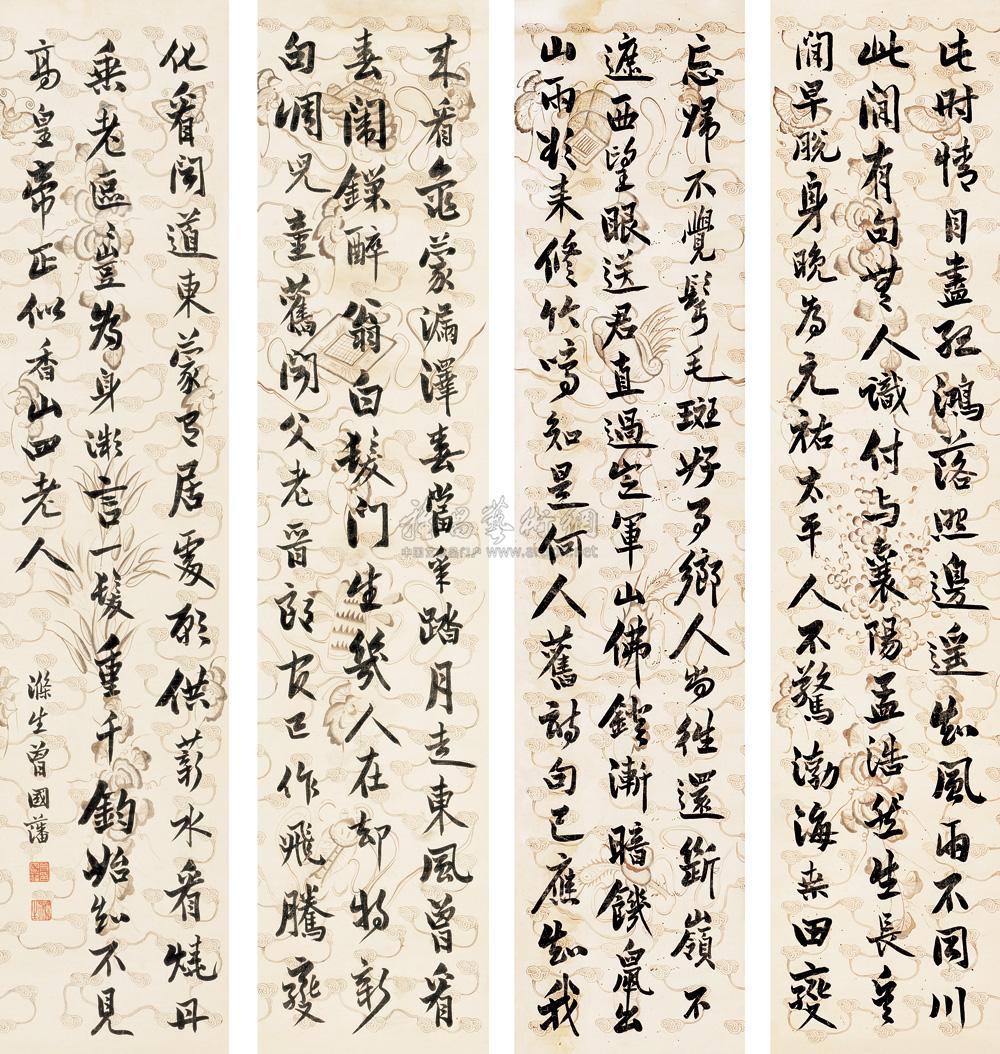 此时情目盡孤鴻落照邊遥知風雨不同川
此間有句無人識付与襄陽孟浩然生長兵
間早脱身晚为元祐太平人不驚渤海桑田變
忘歸不覺鬢毛斑好事鄉人尚往還斷嶺不
遮西望眼送君直過定軍山佛鐙漸暗饑鼠出
山雨欻来修竹鳴知是何人舊詩句已應知我
来看龜蒙漏澤春當年踏月走東風曾看
春闈鏁醉翁白髮門生幾人在却將新
句調兒童舊聞父老晉郎官已作飛騰變
化看聞道東蒙有居處願供薪水看燒丹
乘老區區豈为身微言一髮重千鈞始知不見
高皇帝正似香山四老人
滌生曾國藩